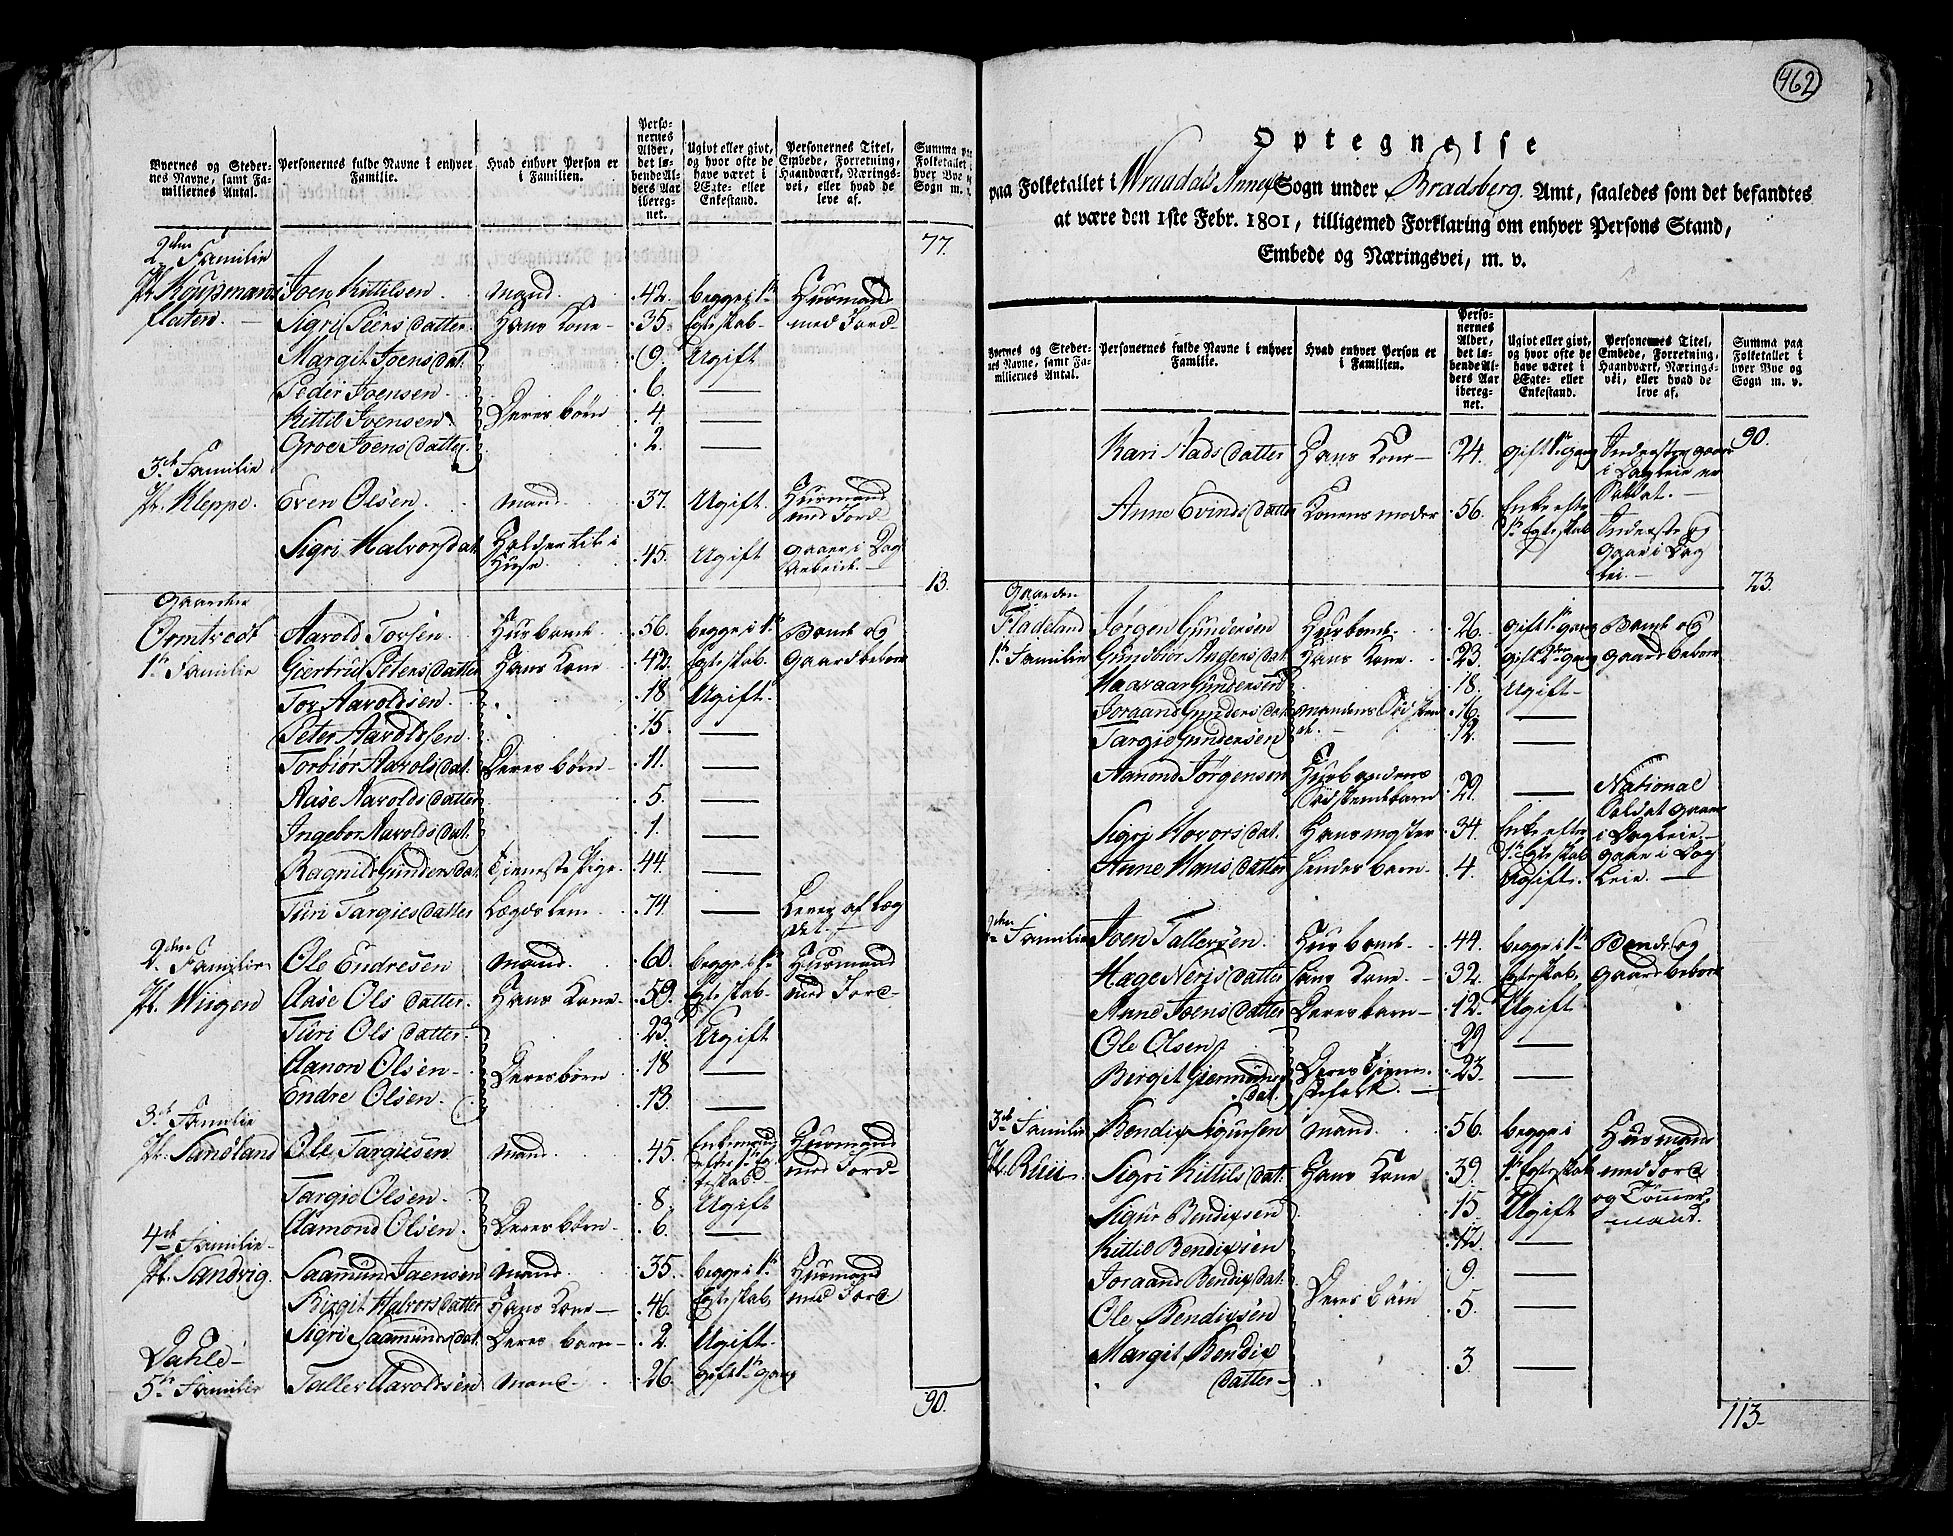 Byernes og Steder-
nes Navne, samt Fa-
miliernes Antal.
Personernes fulde Navne i enhver
Familie.
Hvad enhver Person er
i Familien.
Perso-
nernes
Alder,
det lø-
bende Al-
ders Aar
iberegnet.
Ugivt eller givt,
og hvor ofte de
have været i
Ægte- eller
Enkestand.
Personernes Titel,
Embede, Forretning,
Haandværk, Nærings-
vei, eller hvad de
leve af.
Summa
Folketallet i
hver Bye
Sogn m.
77.
2den Familie
Joen Kittilsen mand 42. begge i 1te Huusmand
fladen. Sigri Hans Kone 35. Egteskab med Jord
Margit Joensdat. 9. Ugift
Peder Joensen 6. —
Kittil Joensen Deres børn 4. —
Groe Joensdatter 2. —
3de Familie
Pl. Kleppe. Even Olsen mand 37. Ugift Huusmand
med Jord
Sigri Halvorsdat. Holder til i
Huse. 45. Ugift gaaer i Dag
Arbeide.
13.
Gaarden
Omtvedt Aarold Torsen Husbonde 56. begge i 1te Bonde og
1te Familie Giertrud Petersdatter Hans Kone 42. Egteskab. Gaardbeboer
Tor Aaroldsen 18 Ugift.
Peter Aaroldsen 15 —
Torbiør Aaroldsdat. Deres børn 11. —
Aase Aaroldsdatter 5. —
Ingebor Aaroldsdat. 1. —
Ragnild Gundersdat. Tieneste Pige 44. —
Turi Targiesdatter Lægdslem 74. — Lever af Læg
det.
2den Familie Ole Endresen mand 60. begge i 1te Huusmand
Pl. Wiigen Aase Olsdatter Hans Kone 59. Egteskab med Jord
Turi Olsdatter 23. Ugift
Aanon Olsen Deres børn 18 —
Endre Olsen 13. —
3de Familie
Pl. Sandland Ole Targiesen mand 45. Enkemand
efter 1te Eg-
teskab Huusmand
med Jord
Targie Olsen 8. Ugift
Aamond Olsen Deres børn 6. —
4de Familie
Pl. Sandvig. Saamund Joensen mand 35. begge i 1te Huusmand
Birgit Halvorsdatter Hans Kone 46. Egteskab med Jord
Sigri Saamundsdat. Deres barn 2. Ugift.
Dahle
5te Familie Taller Aaroldsen mand 26. gift 1te gang
90.
462
Optegnelse
paa Folketallet i Wraadals Annex Sogn under Bradsberg Amt, saaledes som det befandtes
at være den 1ste Febr. 1801, tilligemed Forklaring om enhver Persons Stand,
Embede og Næringsvei, m. v.
Byernes og Steder-
nes Navne, samt Fa-
miliernes Antal.
Personernes fulde Navne i enhver
Familie.
Hvad enhver Person er
i Familien.
Perso-
nernes
Alder,
det lø-
bende Al-
ders Aar
iberegnet.
Ugivt eller givt,
og hvor ofte de
have været i
Ægte- eller
Enkestand.
Personernes Titel,
Embede, Forretning,
Haandværk, Nærings-
vei, eller hvad de
leve af.
Summa paa
Folketallet i
hver Bye og
Sogn m. v.
90.
Kari Aadsdatter Hans Kone 24. gift 1te gang Inderste gaaer
i Dagleie er
Soldat.
Anne Evindsdatter Konens moder 56. Enke efter
1te Egteskab Inderste og
gaar i Dag
leie.
23.
Gaarden
Fladeland Jørgen Gundersen Husbonde. 26. gift 1te gang Bonde og
1te Familie Gunbiør Andersdat. Hans Kone 23. gift 2den gang gaardbeboer
Haavaar Gundersen 18. Ugift
Joraand Gundersdat. mandens Sødsken 16. —
Targie Gundersen 12. —
Aamond Jørgensen Husbondens
Sødskendebarn 29. — National
Soldat gaaer
i Dagleie.
Sigri Hovorsdat. Hans moster 34. Enke efter
1te Egteskab gaaer i Dag
Leie.
Anne Hansdatter hendes barn 4. Ugift.
2den Familie Joen Tallersen Husbonde 44. begge i 1te Bonde og
Hage Nerisdatter hans Kone 32. Egteskab, gaardbeboer
Anne Joensdatter Deres barn 12. Ugift
Ole Olsen 29 —
Birgit Giermunds
dat. Deres Tienne-
stefolk. 23. —
3de Familie Bendix Sigursen mand 56. begge i Huusmand
Pl. Sigri Kittilsdat. Hans Kone 39. 1te Egteskab med Jord
og Tømmer-
mand.
Sigur Bendixsen 15. Ugift
Kittil Bendixsen 12. —
Joraand Bendixdat. 9. —
Ole Bendixsen Deres Børn 5. —
Margit Bendix
datter 3 —
113.